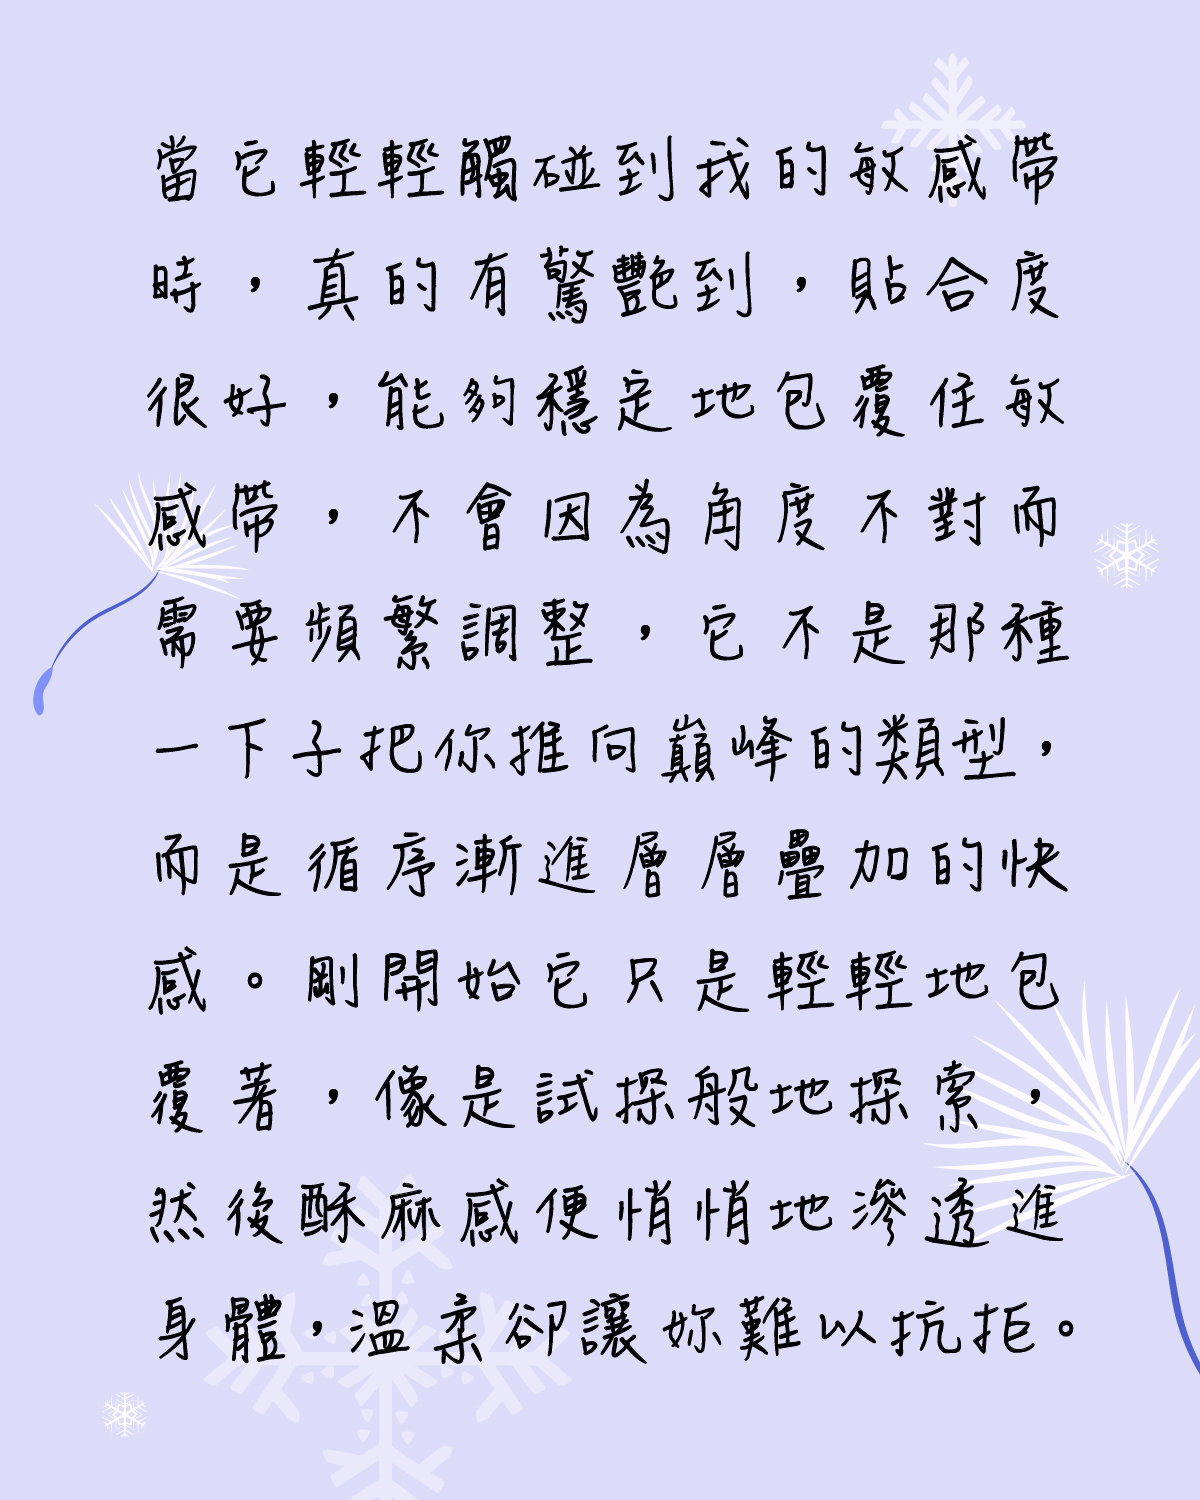 當它輕輕觸碰到我的敏感帶
時，真的有驚艷到，貼合度
很好，能夠穩定地包覆住敏
感帶，不會因為角度不對而
需要頻繁調整，它不是那種
一下子把你推向巔峰的類型，
而是循序漸進層層疊加的快
感。剛開始它只是輕輕地包
覆著，像是試探般地探索，
然後酥麻感便悄悄地滲透進
身體，溫柔卻讓妳難以抗拒。